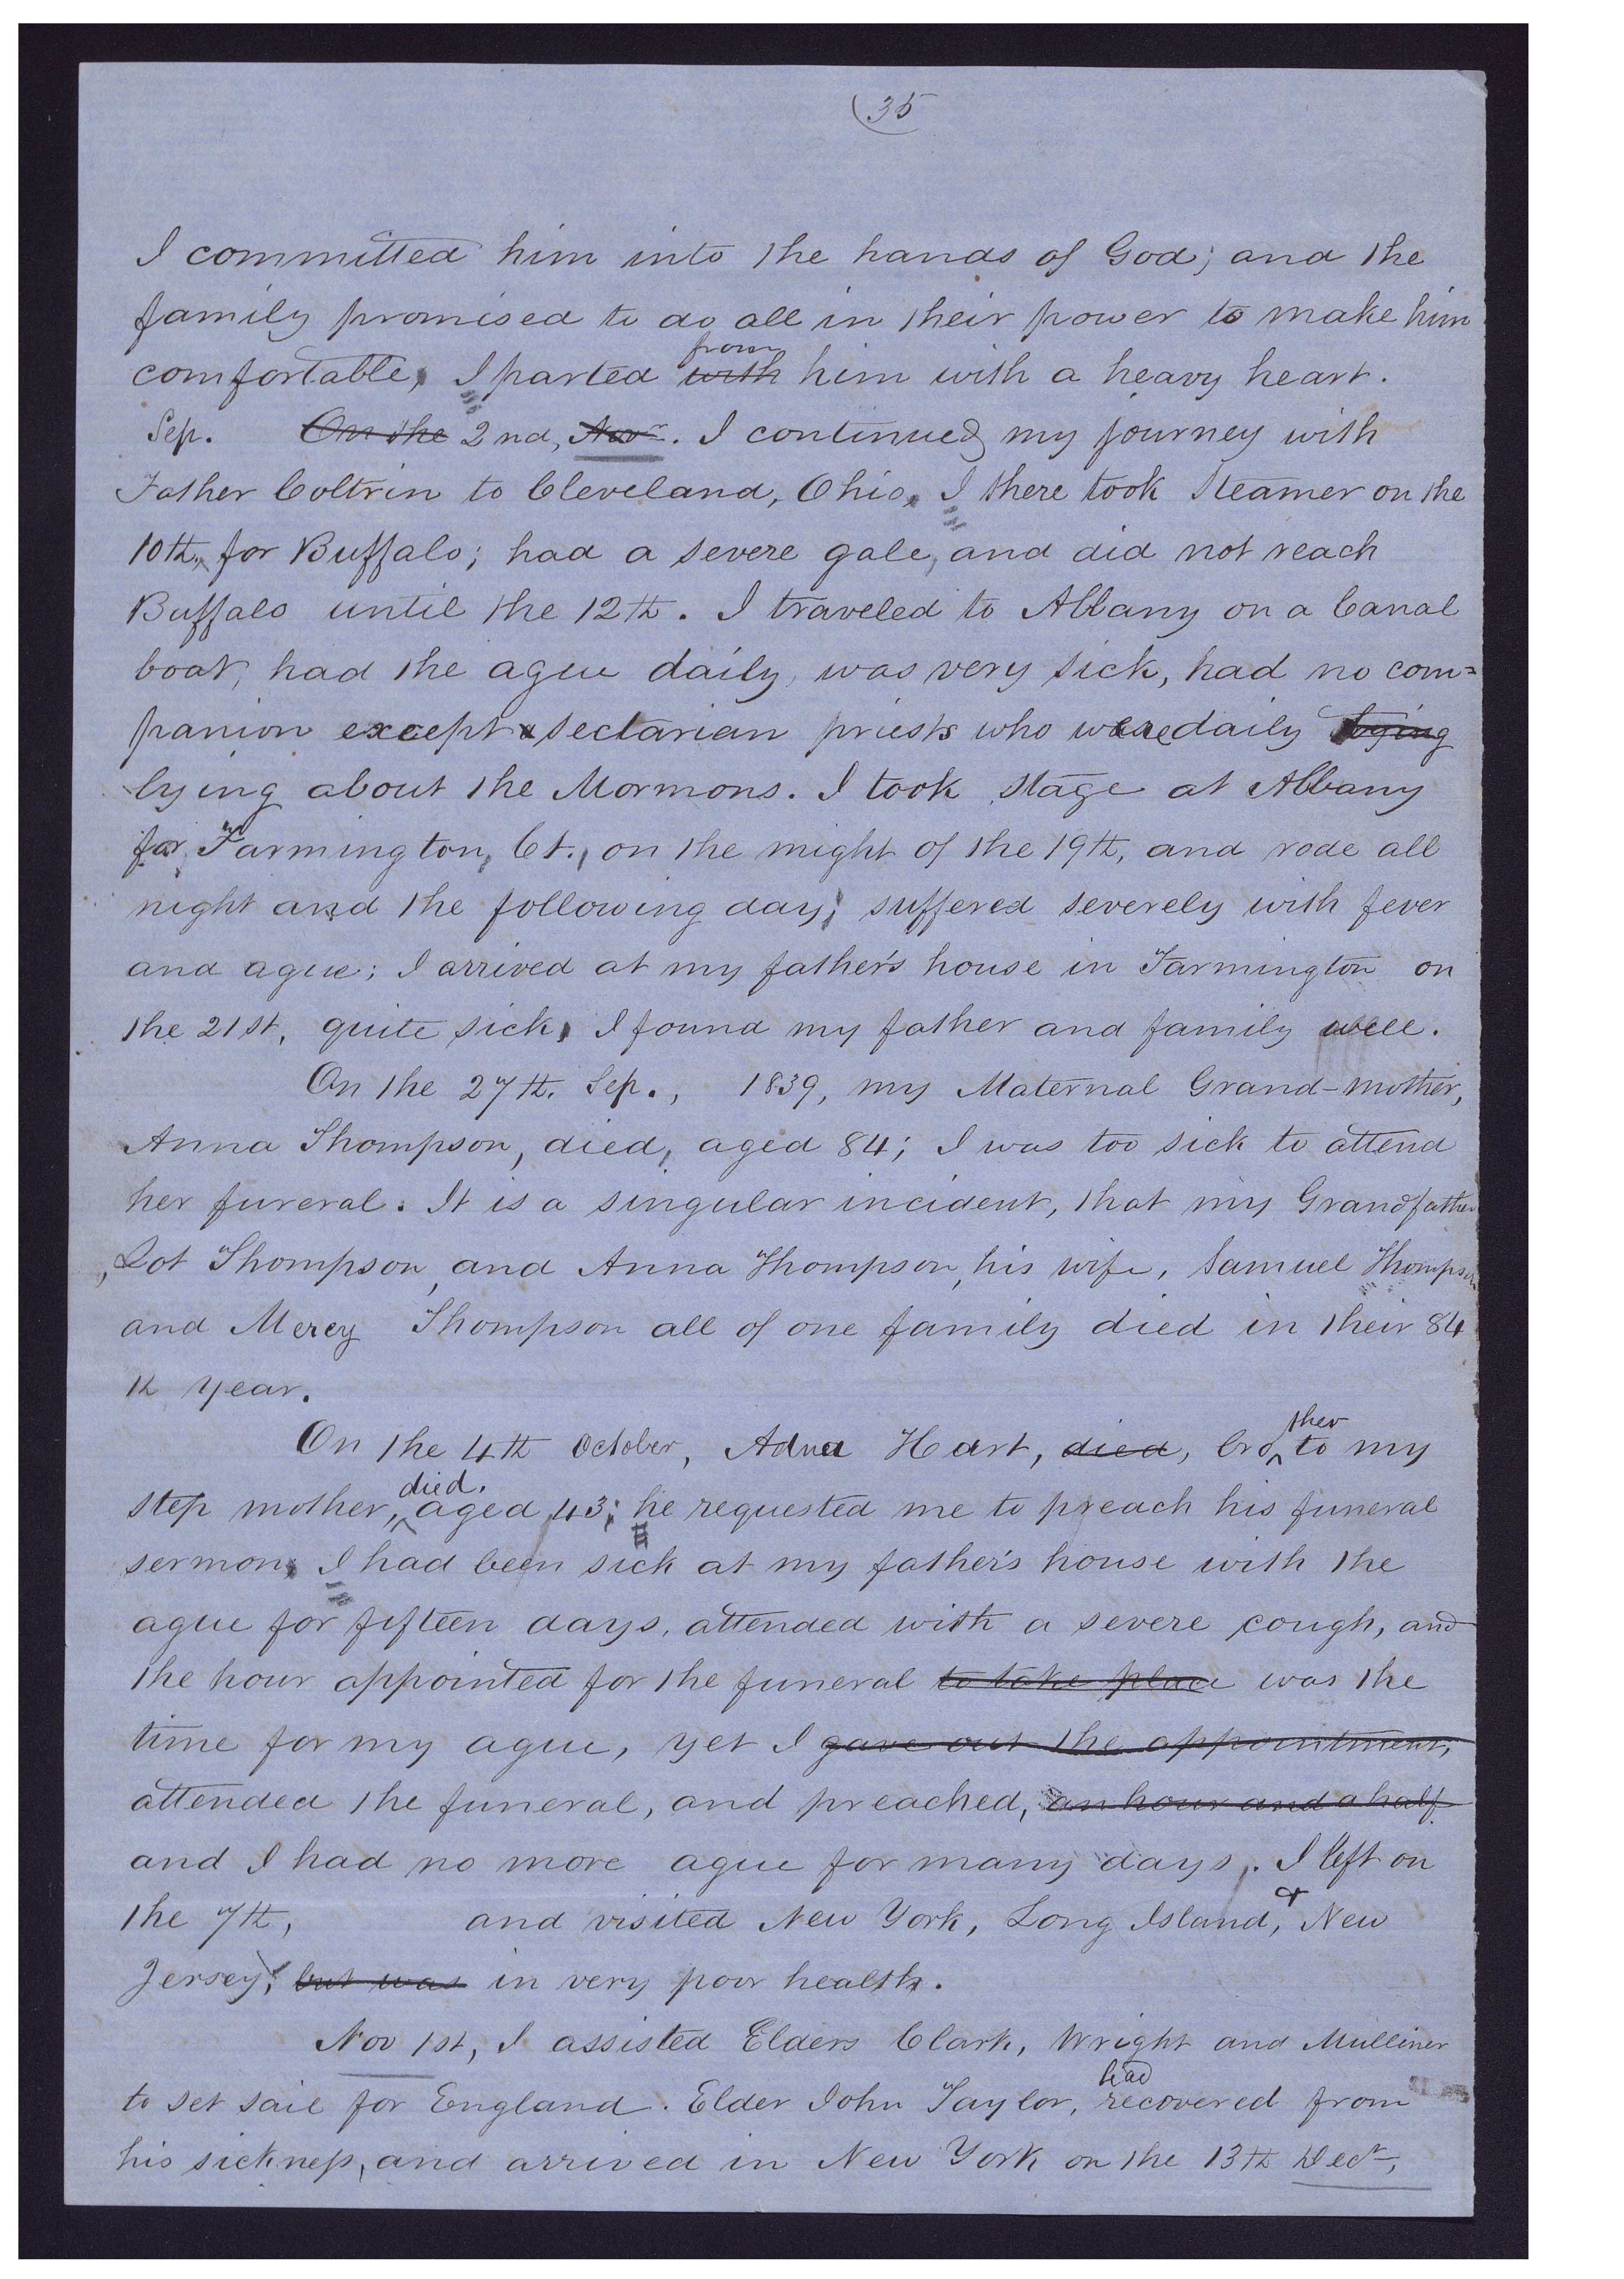 35
I committed him into the hands of God; and the
family promised to do all in their power to make him
from
comfortable, I parted with him with a heavy heart.
Sep. On the 2nd, Novr. I continued my journey with
Father Coltrin to Cleveland, Ohio, I there took Steamer on the
10th, for Buffalo; had a severe gale, and did not reach
Buffalo until the 12th. I traveled to Albany on a Canal
boat, had the ague daily, was very sick, had no com=
panion except sectarian priests who were daily lying
lying about the Mormons. I took stage at Albany
for Farmington, Ct., on the night of the 19th, and rode all
night and the following day; suffered severely with fever
and ague; I arrived at my father's house in Farmington on
the 21st, quite sick, I found my father and family well.
On the 27th. Sep., 1839, my Maternal Grand-mother,
Anna Thompson, died, aged 84; I was too sick to attend
her funeral. It is a singular incident, that my Grandfather
, Lot Thompson, and Anna Thompson, his wife, Samuel Thompson
and Mercy Thompson all of one family died in their 84
th year.
ther
On the 4th October, Adna Hart, died, bro^ to my
died.
step mother,^ aged 43; he requested me to preach his funeral
sermon, I had been sick at my father's house with the
ague for fifteen days, attended with a severe cough, and
the hour appointed for the funeral to take place was the
time for my ague, yet I gave out the appointment,
attended the funeral, and preached, an hour and a half
and I had no more ague for many days. I left on
&
the 7th, and visited New York, Long Island, New
Jersey, but was in very poor health.
Nov 1st, I assisted Elders Clark, Wright and Mulliner
had
to set sail for England. Elder John Taylor, recovered from
his sickness, and arrived in New York on the 13th Decr,